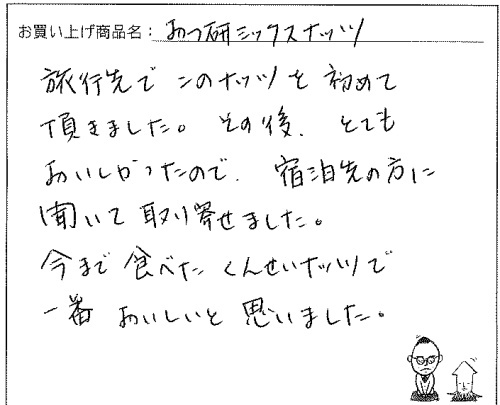 お買い上げ商品名：おつ研ミックスナッツ
旅行先で このナッツを 初めて
頂きました。その後、とても
おいしかったので、宿泊先の方に
聞いて 取り寄せました。
今まで 食べた くんせいナッツで
一番 おいしいと 思いました。